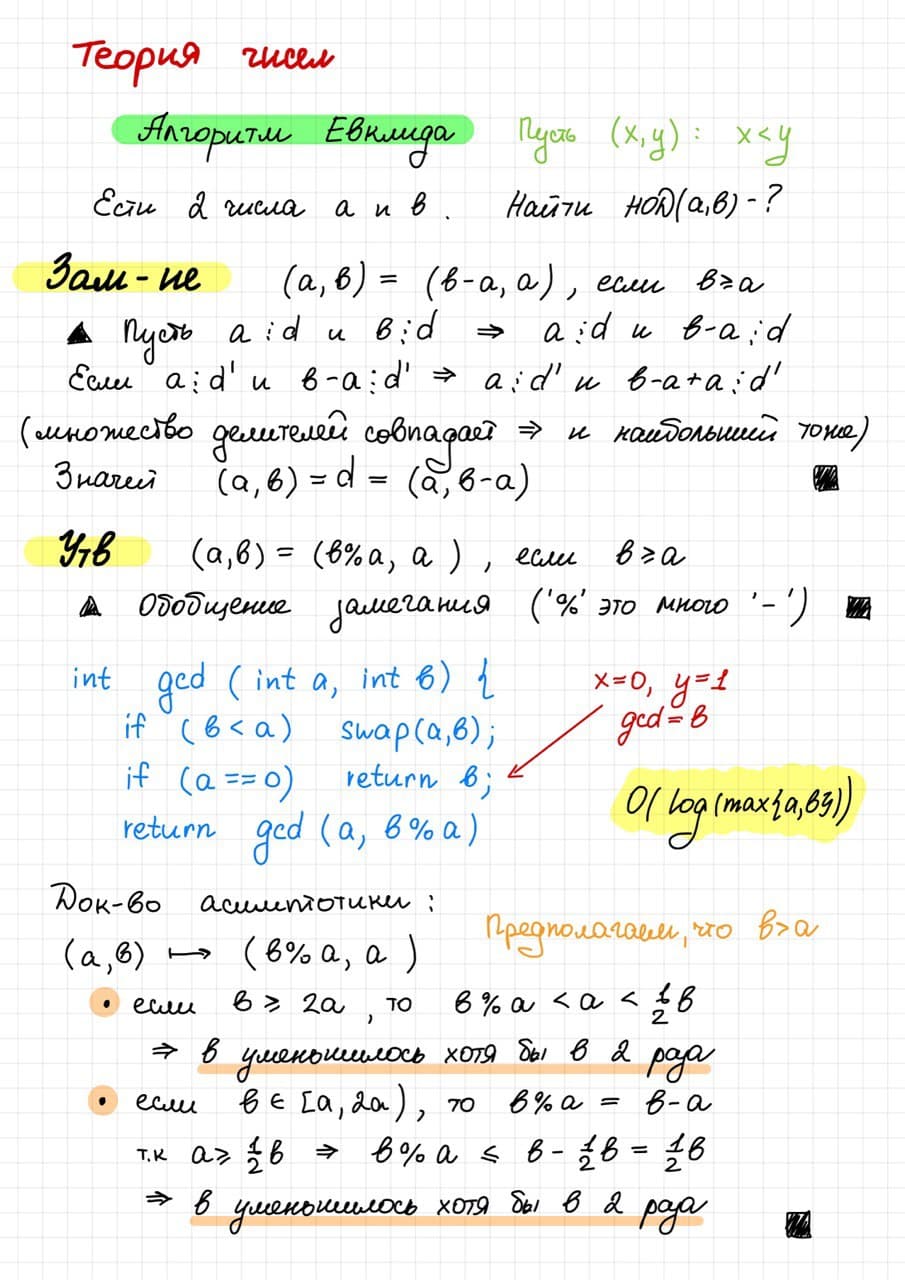 Теория чисел
Алгоритм Евклида Пусть (x,y): x<y
Есть 2 числа a и b. Найти НОД(a,b)-?
Зам-ие (a,b) = (b-a, a), если b≥a
▲ Пусть a⋮d и b⋮d ⇒ a⋮d и b-a⋮d
Если a⋮d' и b-a⋮d' ⇒ a⋮d' и b-a+a⋮d'
(множество делителей совпадает ⇒ и наибольший тоже)
Значит (a,b) = d = (a, b-a) ■
Утв (a,b) = (b%a, a), если b≥a
▲ Обобщение замечания ('%' это много '-') ■
int gcd (int a, int b) {
x=0, y=1
if (b < a) swap(a,b);
gcd = b
if (a == 0) return b;
O(log(max{a,b}))
return gcd (a, b%a)
Док-во асимптотики:
Предполагаем, что b>a
(a,b) ↦ (b%a, a)
• если b ≥ 2a, то b%a < a < 1/2 b
⇒ b уменьшилось хотя бы в 2 раза
• если b ∈ [a, 2a), то b%a = b-a
т.к a ≥ 1/2 b ⇒ b%a ≤ b - 1/2 b = 1/2 b
⇒ b уменьшилось хотя бы в 2 раза ■